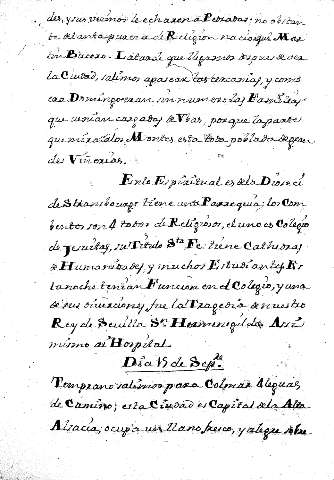 des, y sus vezinos le echaren a Pedradas; no obstan
te de tanta pureza de Religion nacio aqui Mar
tin Bucero. La tarde que llegamos despues de ver
la Ciudad, salimos a pasear las cercanias, y como
era Domingo eran sin numero las Familias
que venian cargadas de Vvas, porque la parte
que mira a los Montes esta toda poblada de gran
des Viñerias.
En lo Espiritual es de la Diocesi
de Strasbourg tiene una Parroquia; los Com
bentos son 4 todos de Religiosos, el uno es Colegio
de Jesuitas, su Titulo Sta Fe tiene Cathedras
de Humanidades, y muchos Estudiantes, Es
ta noche tenian Funcion en el Colegio, y una
de sus diversiones fue la Tragedia de nuestro
Rey de Sevilla Sn Hermenegildo. Assi
mismo ai Hospital.
Dia 15 de Sepre
Temprano salimos para Colmar 4 leguas
de Camino; esta Ciudad es Capital de la Alta
Alsacia; ocupa un llano fresco, y alegre